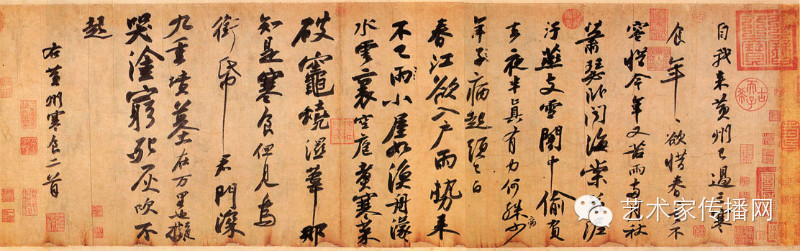 自我來黃州已過三寒
食年〻欲惜春春去不
容惜今年又苦雨兩月秋
蕭瑟臥聞海棠花泥
汙燕支雪闇中偷負
去夜半真有力何殊少病
年子病起頭已白
春江欲入戶雨勢來
不已雨小屋如漁舟濛〻
水雲裏空庖煮寒菜
破竈燒濕葦那
知是寒食但見烏
銜帋君門深
九重墳墓在万里也擬
哭塗窮死灰吹不
起
右黃州寒食二首
艺术家传播网